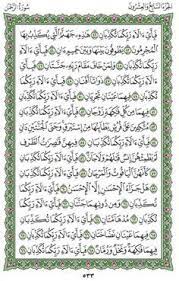 الجزء السابع والعشرون
سورة الرحمن
فَبِأَيِّ ءَالَآءِ رَبِّكُمَا تُكَذِّبَانِ هَٰذِهِۦ جَهَنَّمُ ٱلَّتِي يُكَذِّبُ بِهَا
ٱلْمُجْرِمُونَ يَطُوفُونَ بَيْنَهَا وَبَيْنَ حَمِيمٍ ءَانٍ فَبِأَيِّ ءَالَآءِ
رَبِّكُمَا تُكَذِّبَانِ وَلِمَنْ خَافَ مَقَامَ رَبِّهِۦ جَنَّتَانِ
فَبِأَيِّ ءَالَآءِ رَبِّكُمَا تُكَذِّبَانِ ذَوَاتَآ أَفْنَانٍ فَبِأَيِّ ءَالَآءِ رَبِّكُمَا
تُكَذِّبَانِ فِيهِمَا عَيْنَانِ تَجْرِيَانِ فَبِأَيِّ ءَالَآءِ رَبِّكُمَا تُكَذِّبَانِ
فِيهِمَا مِن كُلِّ فَٰكِهَةٍ زَوْجَانِ فَبِأَيِّ ءَالَآءِ رَبِّكُمَا تُكَذِّبَانِ
مُتَّكِـِٔينَ عَلَىٰ فُرُشٍۭ بَطَآئِنُهَا مِنْ إِسْتَبْرَقٍ وَجَنَى ٱلْجَنَّتَيْنِ دَانٍ
فَبِأَيِّ ءَالَآءِ رَبِّكُمَا تُكَذِّبَانِ فِيهِنَّ قَٰصِرَٰتُ ٱلطَّرْفِ لَمْ
يَطْمِثْهُنَّ إِنسٌ قَبْلَهُمْ وَلَا جَآنٌّ فَبِأَيِّ ءَالَآءِ رَبِّكُمَا تُكَذِّبَانِ
كَأَنَّهُنَّ ٱلْيَاقُوتُ وَٱلْمَرْجَانُ فَبِأَيِّ ءَالَآءِ رَبِّكُمَا تُكَذِّبَانِ
هَلْ جَزَآءُ ٱلْإِحْسَٰنِ إِلَّا ٱلْإِحْسَٰنُ فَبِأَيِّ ءَالَآءِ رَبِّكُمَا
تُكَذِّبَانِ وَمِن دُونِهِمَا جَنَّتَانِ فَبِأَيِّ ءَالَآءِ رَبِّكُمَا تُكَذِّبَانِ
مُدْهَآمَّتَانِ فَبِأَيِّ ءَالَآءِ رَبِّكُمَا تُكَذِّبَانِ
فِيهِمَا عَيْنَانِ نَضَّاخَتَانِ فَبِأَيِّ ءَالَآءِ رَبِّكُمَا تُكَذِّبَانِ
فِيهِمَا فَٰكِهَةٌ وَنَخْلٌ وَرُمَّانٌ
٥٣٣